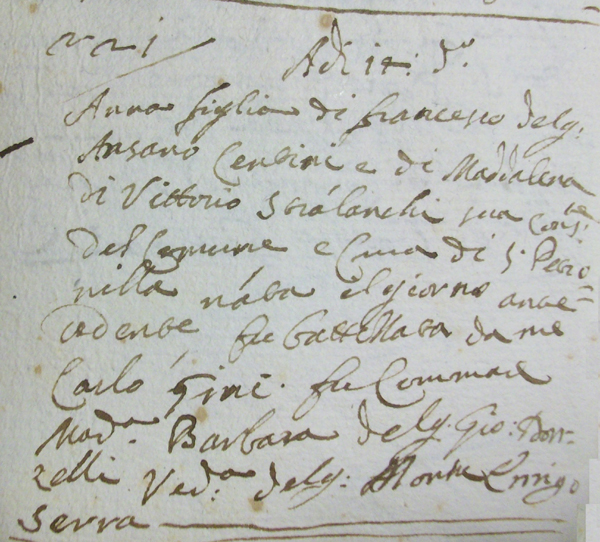 Adi 14: d.º
Anna figlia di francesco del q.
Ansano Centini e di Maddalena
di Vittorio sua Cons.te
del Comune e Cura di S. Petro=
nilla nata el giorno ante=
cedente fu battezzata da me
Carlo Gini. fu Commare
Mad.a Barbara del q. Gio: Don=
zelli Ved.a del q:
Serra